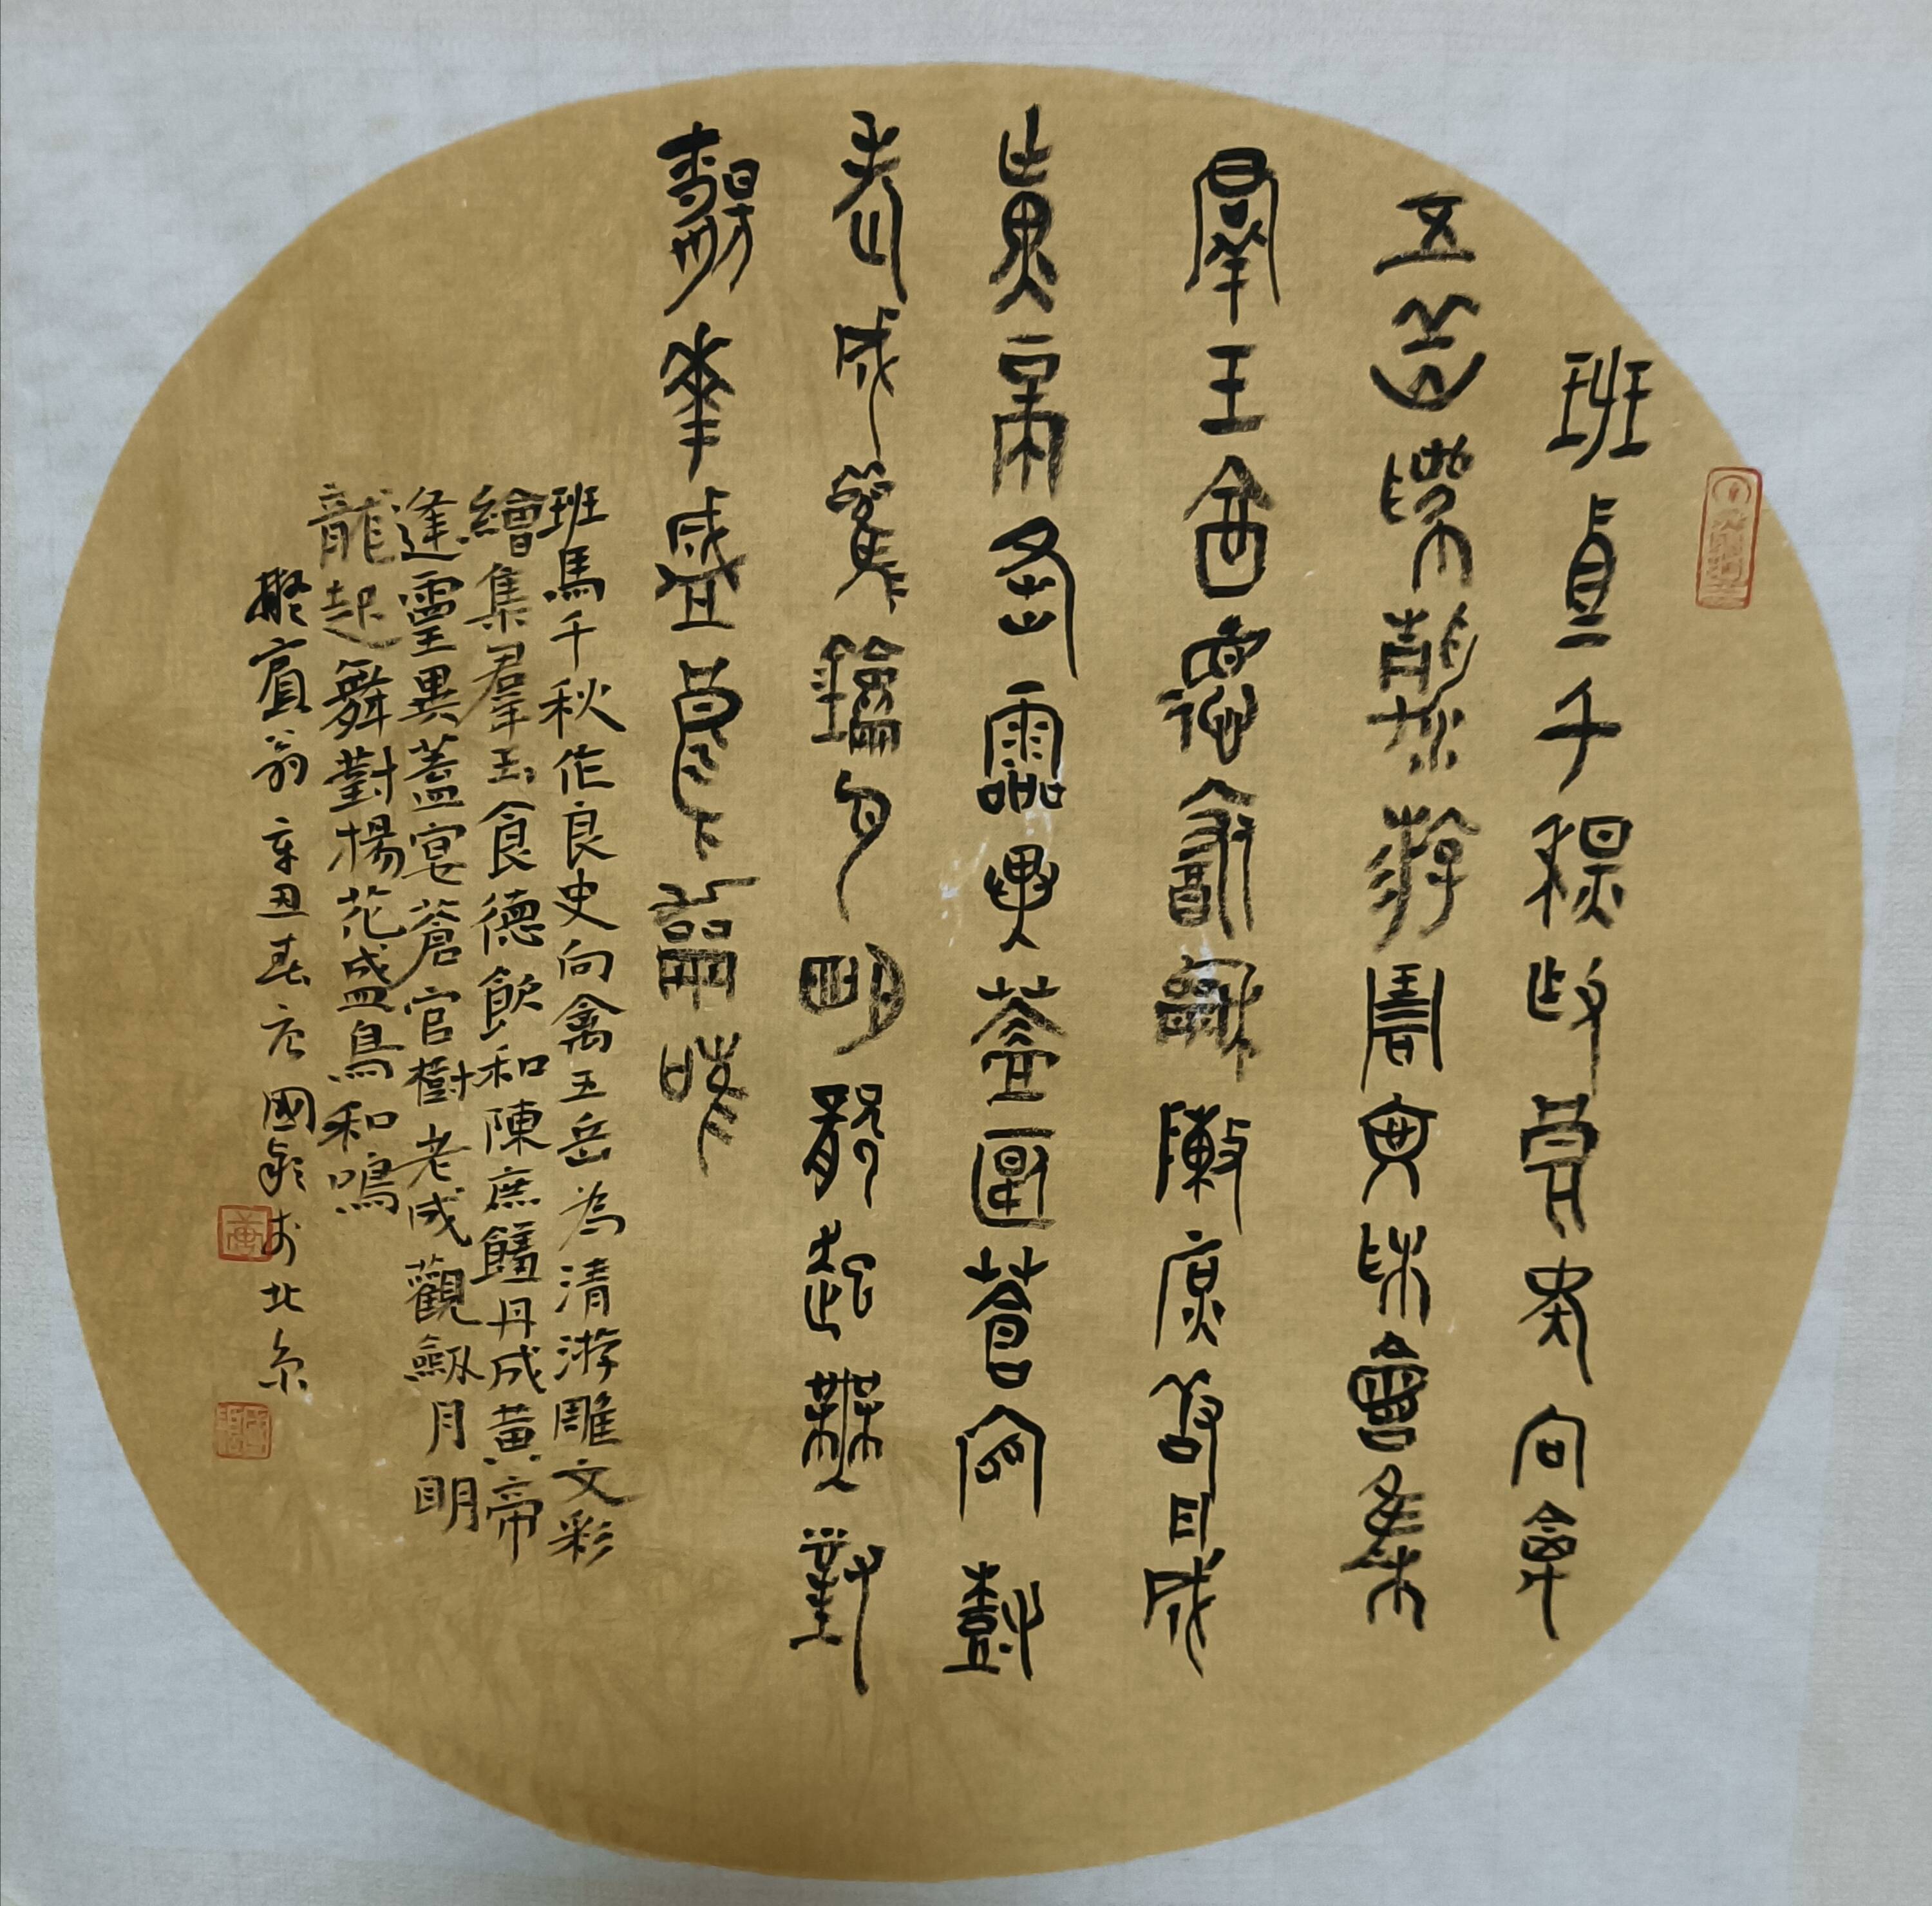 班馬千秋作良史向禽
五岳為清游雕文彩繪集
羣玉食德飲和陳庶饈丹成
黃帝逢靈異蓋宴蒼官樹
老成觀劔月明龍起舞對
楊花盛鳥和鳴
班馬千秋作良史向禽五岳為清游雕文彩
繪集羣玉食德飲和陳庶饈丹成黃帝
逢靈異蓋宴蒼官樹老成觀劔月明
龍起舞對楊花盛鳥和鳴
擬賓翁辛丑春國於北京